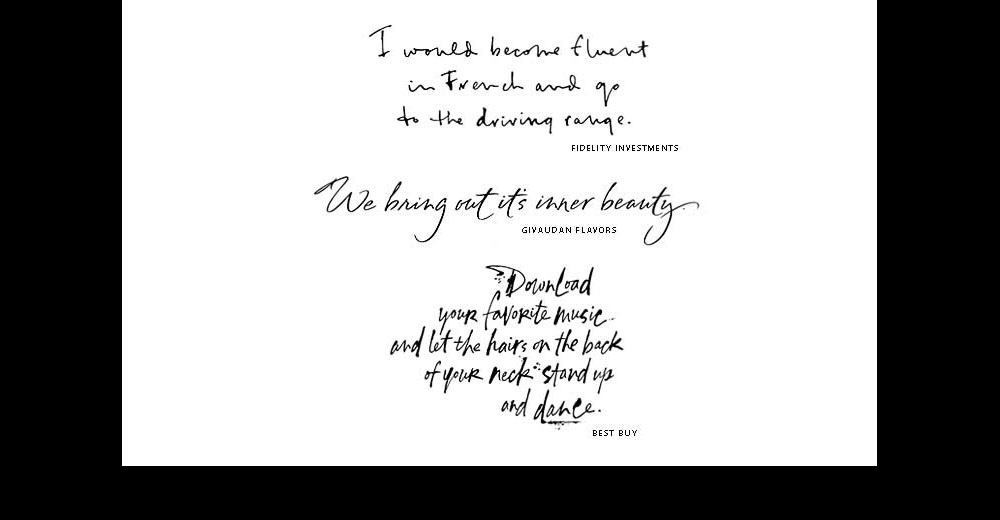 I would become fluent
in French and go
to the driving range.
FIDELITY INVESTMENTS
We bring out it's inner beauty
GIVAUDAN FLAVORS
Download
your favorite music
and let the hairs on the back
of your neck stand up
and dance.
BEST BUY